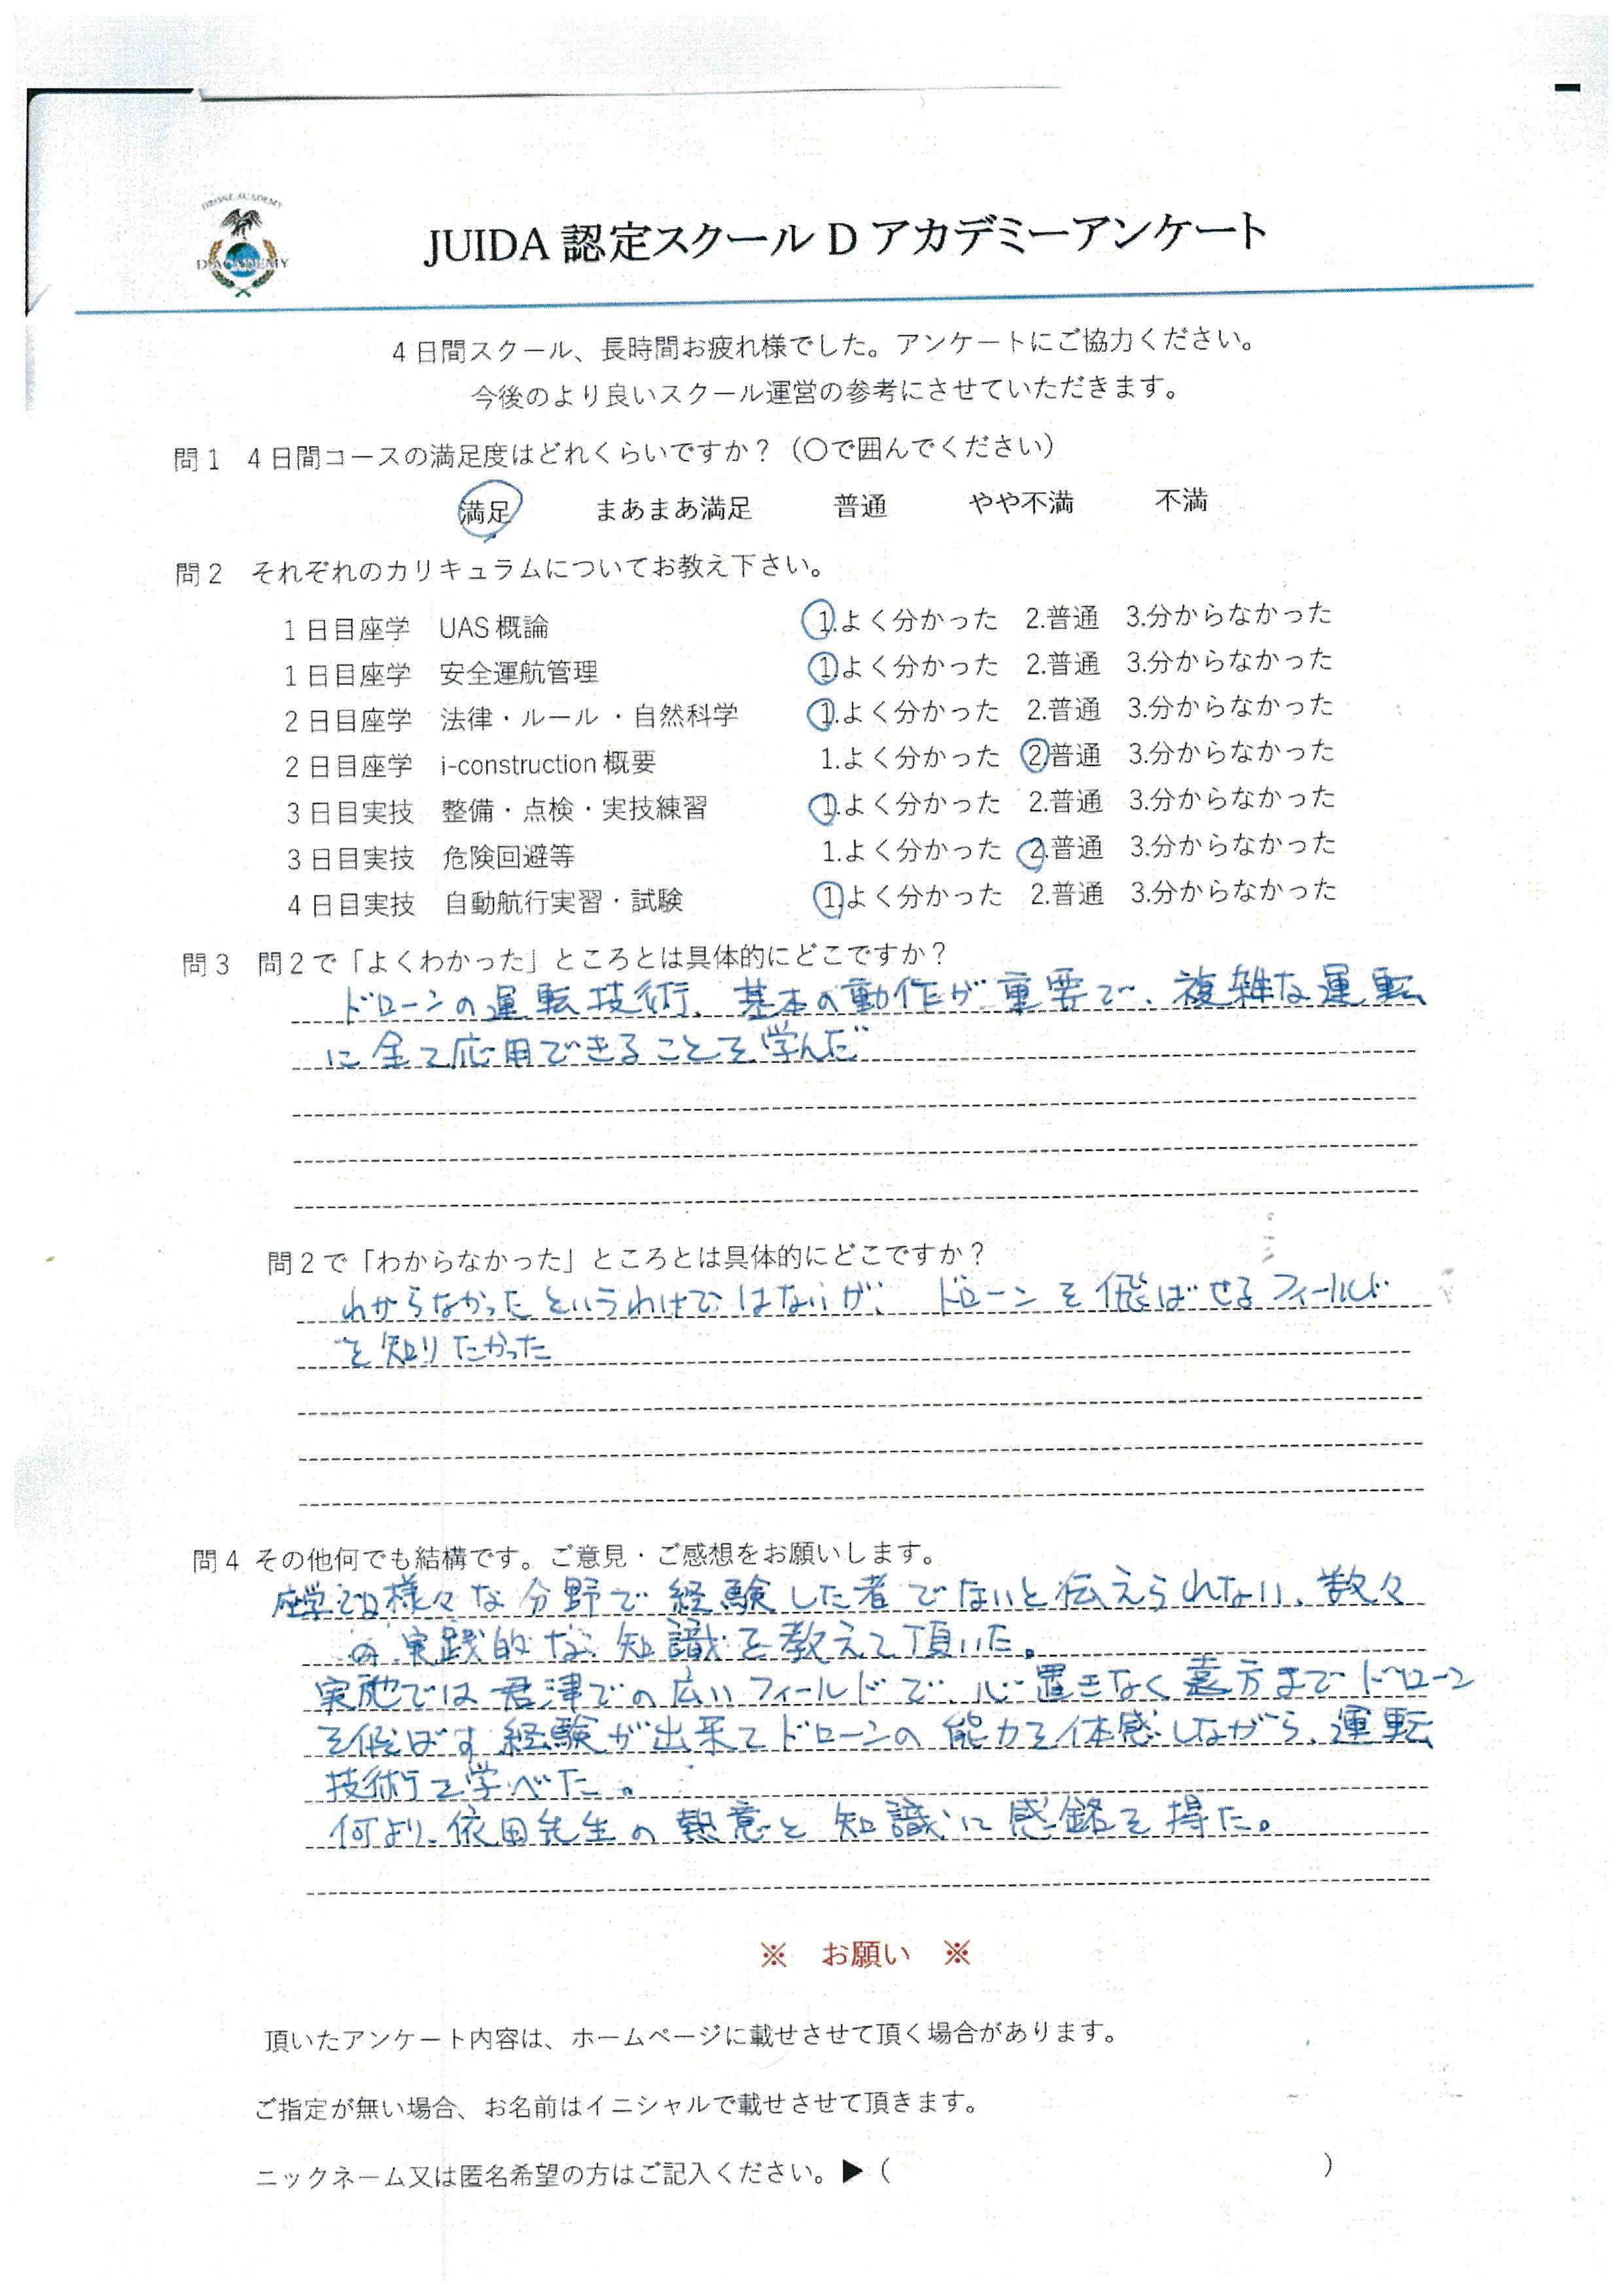 DRONE ACADEMY
D ACADEMY
JUIDA 認定スクール D アカデミーアンケート
4 日間スクール、長時間お疲れ様でした。アンケートにご協力ください。
今後のより良いスクール運営の参考にさせていただきます。
問1 4 日間コースの満足度はどれくらいですか？（〇で囲んでください）
満足 まあまあ満足 普通 やや不満 不満
問2 それぞれのカリキュラムについてお教え下さい。
1 日目座学 UAS 概論 1.よく分かった 2.普通 3.分からなかった
1 日目座学 安全運航管理 1.よく分かった 2.普通 3.分からなかった
2 日目座学 法律・ルール・自然科学 1.よく分かった 2.普通 3.分からなかった
2 日目座学 i-construction 概要 1.よく分かった 2.普通 3.分からなかった
3 日目実技 整備・点検・実技練習 1.よく分かった 2.普通 3.分からなかった
3 日目実技 危険回避等 1.よく分かった 2.普通 3.分からなかった
4 日目実技 自動航行実習・試験 1.よく分かった 2.普通 3.分からなかった
問3 問2で「よくわかった」ところとは具体的にどこですか？
ドローンの運転技術、基本の動作が重要で、複雑な運転
に全て応用できることを学んだ
問2で「わからなかった」ところとは具体的にどこですか？
わからなかったというわけではないが、ドローンを飛ばせるフィールド
を知りたかった
問4 その他何でも結構です。ご意見・ご感想をお願いします。
座学では様々な分野で経験した者でないと伝えられない、数々
の実践的な知識を教えて頂いた。
実地では君津での広いフィールドで、心置きなく遠方までドローン
を飛ばす経験が出来てドローンの能力を体感しながら、運転
技術を学べた。
何より、依田先生の熱意と知識に感銘を得た。
※ お願い ※
頂いたアンケート内容は、ホームページに載せさせて頂く場合があります。
ご指定が無い場合、お名前はイニシャルで載せさせて頂きます。
ニックネーム又は匿名希望の方はご記入ください。▶（ ）